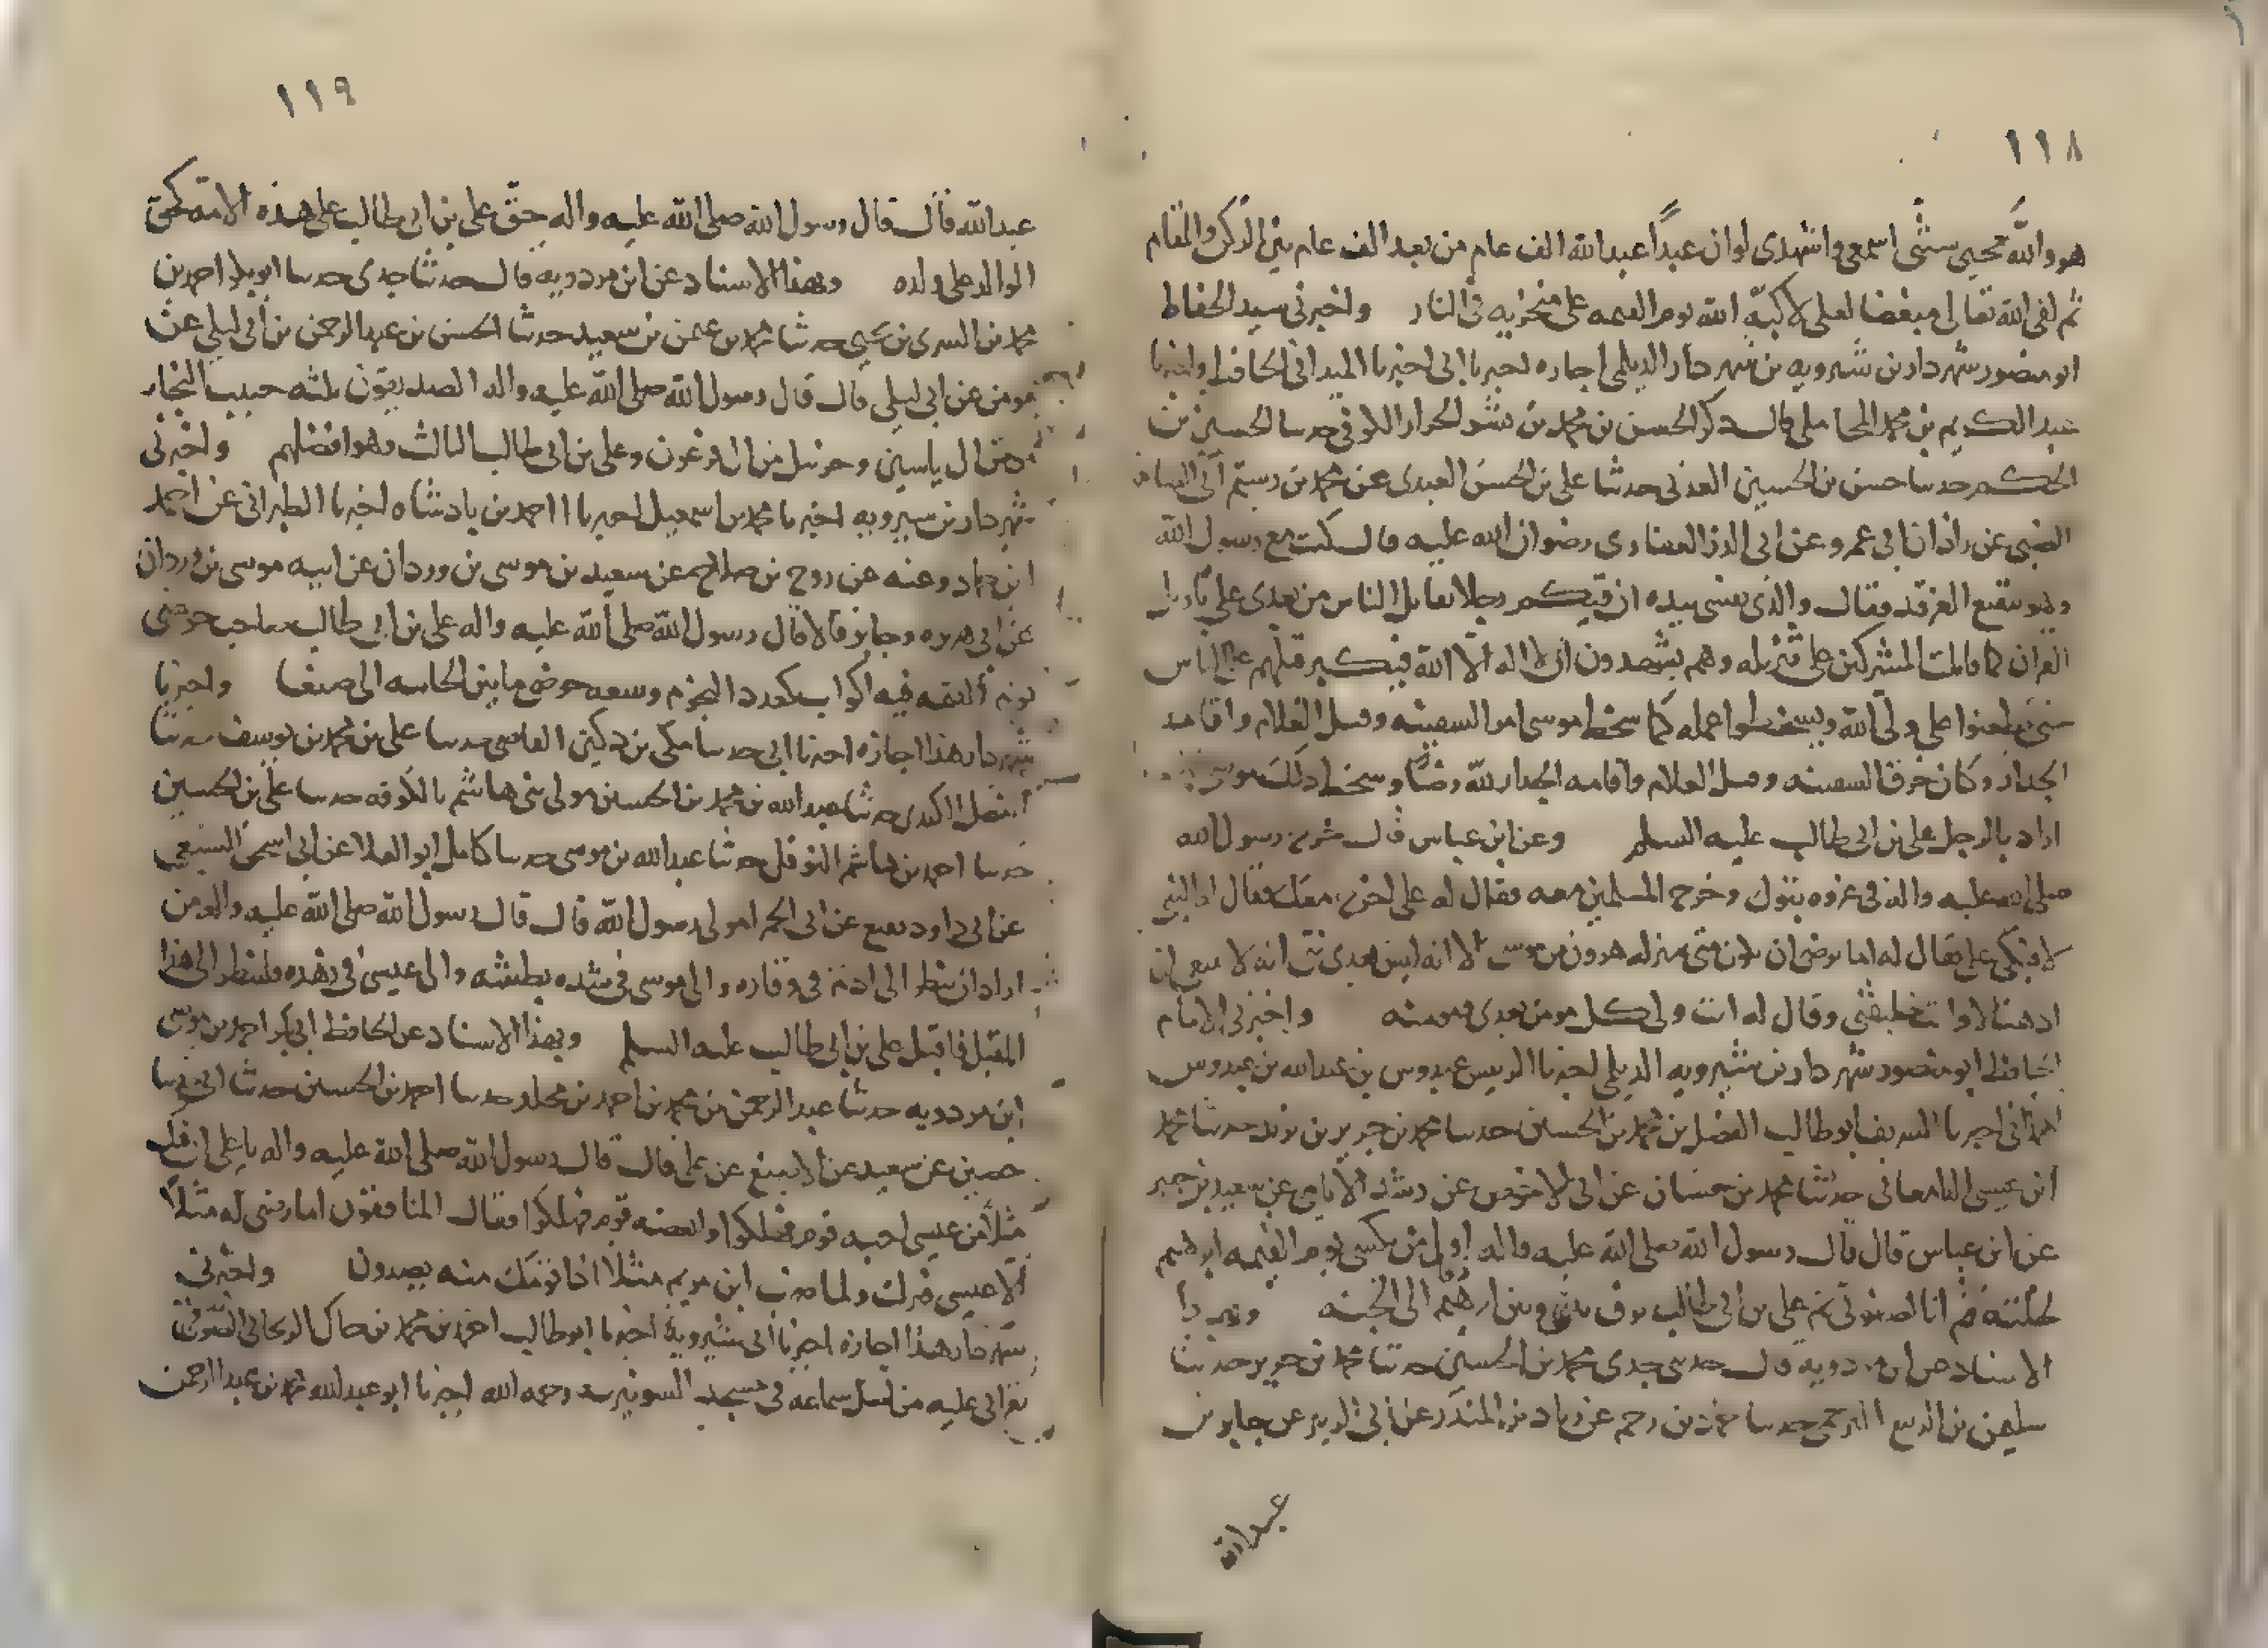 ١١٨
هو والله محيي سنتي اسمعي واشهدي لو ان عبدا عبد الله الف عام من بعد الف عام بين الركن والمقام
ثم لقي الله تعالى مبغضا لعلي لاكبه الله يوم القيمه على منخريه في النار واخبرني سيد الحفاظ
ابو منصور شهردار بن شيرويه بن شهردار الديلمي اجازه اخبرنا ابي اخبرنا الميداني الحافظ واخبرنا
عبد الكريم بن محمد المحاملي قال ذكر الحسن بن محمد بن بشر الخزاز الكوفي حدسا الحسين بن
الحكم حدسا حسن بن الحسين العرني حدثنا علي بن الحسن العبدي عن محمد بن رستم ابي الصامت
الضبي عن زاذان ابي عمرو عن ابي الذر الغفاري رضوان الله عليه قال كنت مع رسول الله
وهو ببقيع الغرقد فقال والذي نفسي بيده ان فيكم رجلا يقاتل الناس من بعدي على تاويل
القران كما قاتلت المشركين على تنزيله وهم يشهدون ان لا اله الا الله فيكبر قتلهم على الناس
حتى يطعنوا على ولي الله ويسخطوا عمله كما سخط موسى امر السفينه وقتل الغلام واقامه
الجدار وكان خرق السفينه وقتل الغلام واقامه الجدار لله رضا وسخط ذلك موسى
اراد بالرجل علي بن ابي طالب عليه السلم وعن ابن عباس قال خرج رسول الله
صلى الله عليه واله في غزوه تبوك وخرج المسلمين معه فقال له علي اخرج معك فقال له النبي
لا فبكى علي فقال له اما ترضى ان تكون مني بمنزله هرون من موسى الا انه ليس بعدي نبي انه لا ينبغي ان
اذهب الا وانت خليفتي وقال له انت ولي كل مومن بعدي ومومنه واخبرني الامام
الحافظ ابو منصور شهردار بن شيرويه الديلمي اخبرنا الرييس عبدوس بن عبد الله بن عبدوس
الهمداني اخبرنا الشريف ابو طالب الفضل بن محمد بن الحسين حدسا محمد بن جرير بن يزيد حدثنا محمد
ابن عيسى الدامغاني حدثنا محمد بن حسان عن ابي الاحوص عن رشد الايامي عن سعيد بن جبير
عن ابن عباس قال قال رسول الله صلى الله عليه واله اول من يكسى يوم القيمه ابرهيم
لخلته ثم انا لصفوتي ثم علي بن ابي طالب يزف بيني وبين ابرهيم الى الجنه وبهذا
الاسناد عن ابن مردويه قال حدسي جدي محمد بن الحسين حدثنا محمد بن جرير حدثنا
سليمن بن الربيع البرجمي حدسا بن رحم عن زياد بن المنذر عن ابي الزبير عن جابر بن
عبد الله
١١٩
عبد الله قال قال رسول الله صلى الله عليه واله حق علي بن ابي طالب على هذه الامه كحق
الوالد على ولده وبهذا الاسناد عن ابن مردويه قال حدثنا جدي حدسا ابو بكر احمد بن
محمد بن السري بن يحيى حدثنا محمد بن عثمن بن سعيد حدثنا الحسن بن عبد الرحمن بن ابي ليلى عن
عن ابي ليلى قال قال رسول الله صلى الله عليه واله الصديقون ثلثه حبيب النجار
مومن ال ياسين وحزبيل من ال فرعون وعلي بن ابي طالب الثالث وهو افضلهم واخبرني
شهردار بن شيرويه اخبرنا محمد بن اسمعيل اخبرنا احمد بن بادشاه اخبرنا الطبراني عن احمد
ابن حماد وعنه عن روح بن صلاح عن سعيد بن موسى بن وردان عن ابيه موسى بن وردان
عن ابي هريره وجابر قالا قال رسول الله صلى الله عليه واله علي بن ابي طالب صاحب حوضي
يوم القيمه فيه اكواب كعدد النجوم وسعه حوضي ما بين الجابيه الى صنعا واخبرنا
شهردار هذا اجازه اخبرنا ابي حدسا مكي بن دكين القاضي حدسا علي بن محمد بن يوسف حدثنا
الفضل الكندي حدثنا عبد الله بن محمد بن الحسين مولى بني هاشم بالكوفه حدسا علي بن الحسين
حدسا احمد بن هاشم النوفلي حدثنا عبد الله بن موسى حدسا كامل ابو العلا عن ابي اسحق السبيعي
عن ابي داود نفيع عن ابي الحمرا مولى رسول الله قال قال رسول الله صلى الله عليه واله من
اراد ان ينظر الى ادم في وقاره والى موسى في شده بطشه والى عيسى في زهده فلينظر الى هذا
المقبل فاقبل علي بن ابي طالب عليه السلم وبهذا الاسناد عن الحافظ ابي بكر احمد بن موسى
ابن مردويه حدثنا عبد الرحمن بن محمد بن احمد بن مخلد حدسا احمد بن الحسين حدثنا ابي حدسا
حصين عن سعيد عن الاصبغ عن علي قال قال رسول الله صلى الله عليه واله يا علي ان فيك
مثلا من عيسى احبه قوم فهلكوا وابغضه قوم فهلكوا فقال المنافقون اما رضي له مثلا
الا عيسى فنزلت ولما ضرب ابن مريم مثلا اذا قومك منه يصدون واخبرني
شهردار هذا اجازه اخبرنا ابي شيرويه اخبرنا ابو طالب احمد بن محمد بن خال الريحاني الصوفي
بقراتي عليه من اصل سماعه في مسجد الشونيزيه رحمه الله اخبرنا ابو عبد الله محمد بن عبد الرحمن